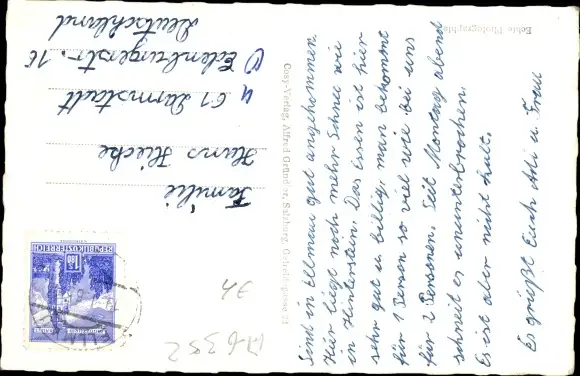 Sind in Ellmau gut angekommen.
Hier liegt noch mehr Schnee wie
in Hinterstein. Das Essen ist hier
sehr gut u. billig, man bekommt
für 1 Person so viel wie bei uns
für 2 Personen. Seit Montag abend
schneit es ununterbrochen.
Es ist aber nicht kalt.
Es grüßt Euch Adi u. Frau
Echte Photographie
Cosy-Verlag, Alfred Gründler, Salzburg,
Familie
Hans Hieche
61 Darmstadt
Edenburgerstr. 10
Deutschland
REPUBLIK ÖSTERREICH
1.80